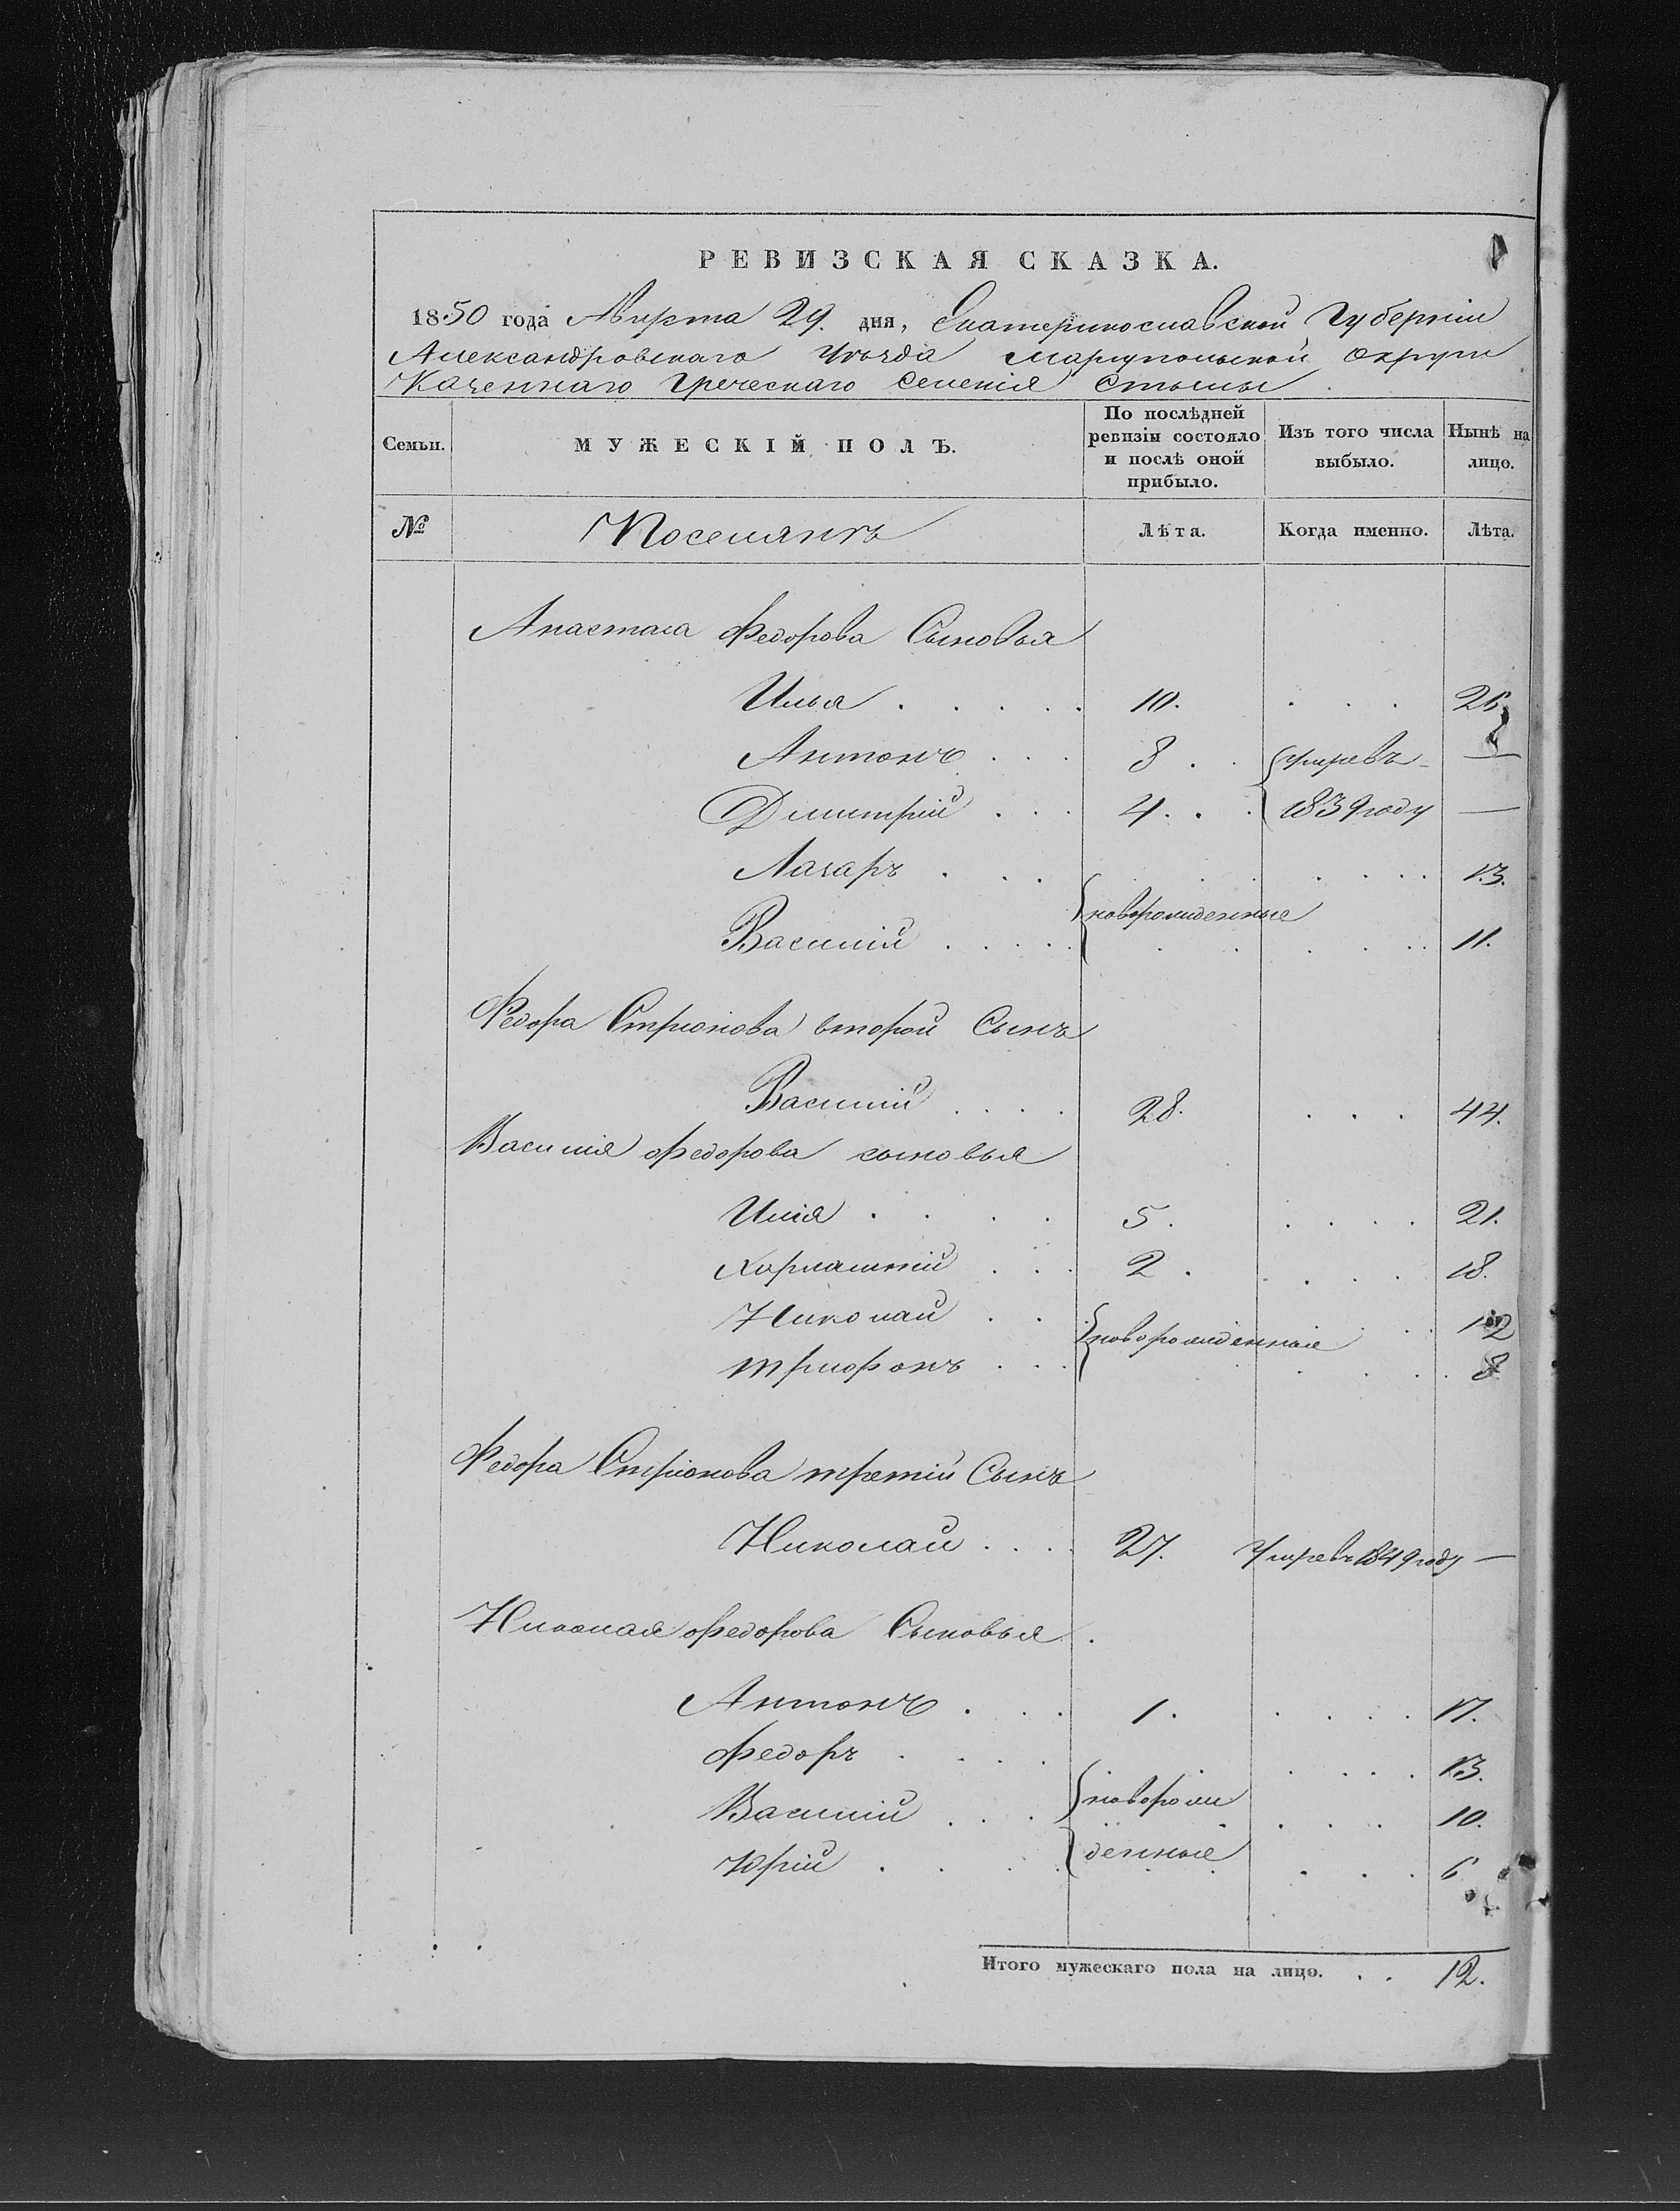 РЕВИЗСКАЯ СКАЗКА.
1850 года Августа 29. дня, Екатеринославской Губерніи
Александровскаго Уѣзда Мариупольской Округи
Казеннаго Греческаго Селенія Стылы
Семьи. МУЖЕСКІЙ ПОЛЪ. По послѣдней ревизіи состояло и послѣ оной прибыло. Изъ того числа выбыло. Нынѣ на лицо.
№ Поселянъ Лѣта. Когда именно. Лѣта.
Анастаса Федорова Сыновья
Илья 10. 26.
Антонъ 8 умре въ —
Дмитрій 4. 1839 году —
Лазарь 13.
новорожденные
Василій 11.
Федора Стріонова второй Сынъ
Василій 28. 44.
Василія Федорова сыновья
Илія 5. 21.
Харлампій 2. 18.
Николай новорожденные 12
Трифонъ 8
Федора Стріонова третій Сынъ
Николай 27. Умре въ 1849 году —
Николая Федорова Сыновья.
Антонъ 1. 17.
Федоръ 13.
Василій новорож 10.
Юрій денные 6
Итого мужескаго пола на лицо. 12.